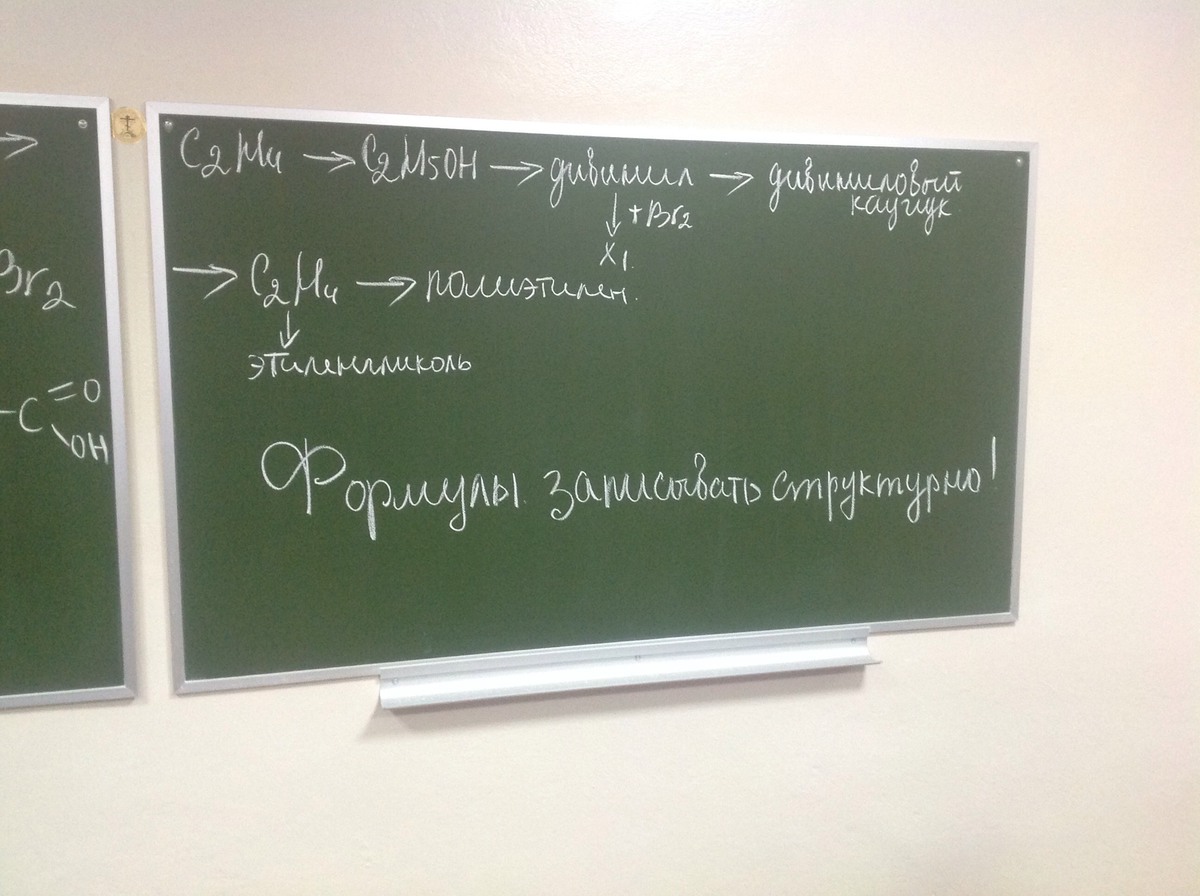 C2H4 → C2H5OH → дивинил → дивиниловый
каучук
↓ + Br2
X1.
→ C2H4 → полиэтилен.
↓
этиленгликоль
Формулы записывать структурно!
→
Br2
-C =O
\OH